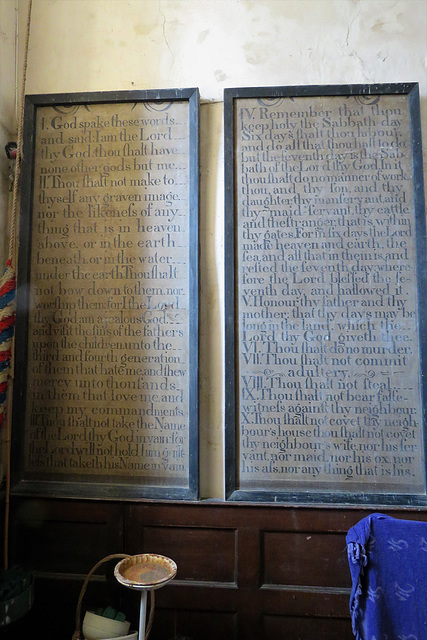 I. God spake these words
and said, I am the Lord
thy God, thou shalt have
none other gods but me
II. Thou shalt not make to
thyself any graven image,
nor the likeness of any
thing that is in heaven
above, or in the earth
beneath, or in the water
under the earth. Thou shalt
not bow down to them, nor
worship them: for I the Lord
thy God am a jealous God
and visit the sins of the fathers
upon the children unto the
third and fourth generation
of them that hate me, and shew
mercy unto thousands
in them that love me, and
keep my commandments
III. Thou shalt not take the Name
of the Lord thy God in vain: for
the Lord will not hold him guilt
less that taketh his Name in vain.
IV. Remember that thou
keep holy the Sabbath day
Six days shalt thou labour
and do all that thou hast to do
but the seventh day is the Sab
bath of the Lord thy God. In it
thou shalt do no manner of work
thou, and thy son, and thy
daughter, thy manservant, and
thy maid-servant, thy cattle
and the stranger that is within
thy gates. For in six days the Lord
made heaven and earth, the
sea, and all that in them is, and
rested the seventh day, where
fore the Lord blessed the se
venth day, and hallowed it
V. Honour thy father and thy
mother; that thy days may be
long in the land, which the
Lord thy God giveth thee
VI. Thou shalt do no murder.
VII. Thou shalt not commit
adultery.
VIII. Thou shalt not steal
IX. Thou shalt not bear false
witness against thy neighbour.
X. Thou shalt not covet thy neigh
bour's house thou shalt not covet
thy neighbour's wife, nor his ser
vant, nor maid, nor his ox, nor
his ass, nor any thing that is his.